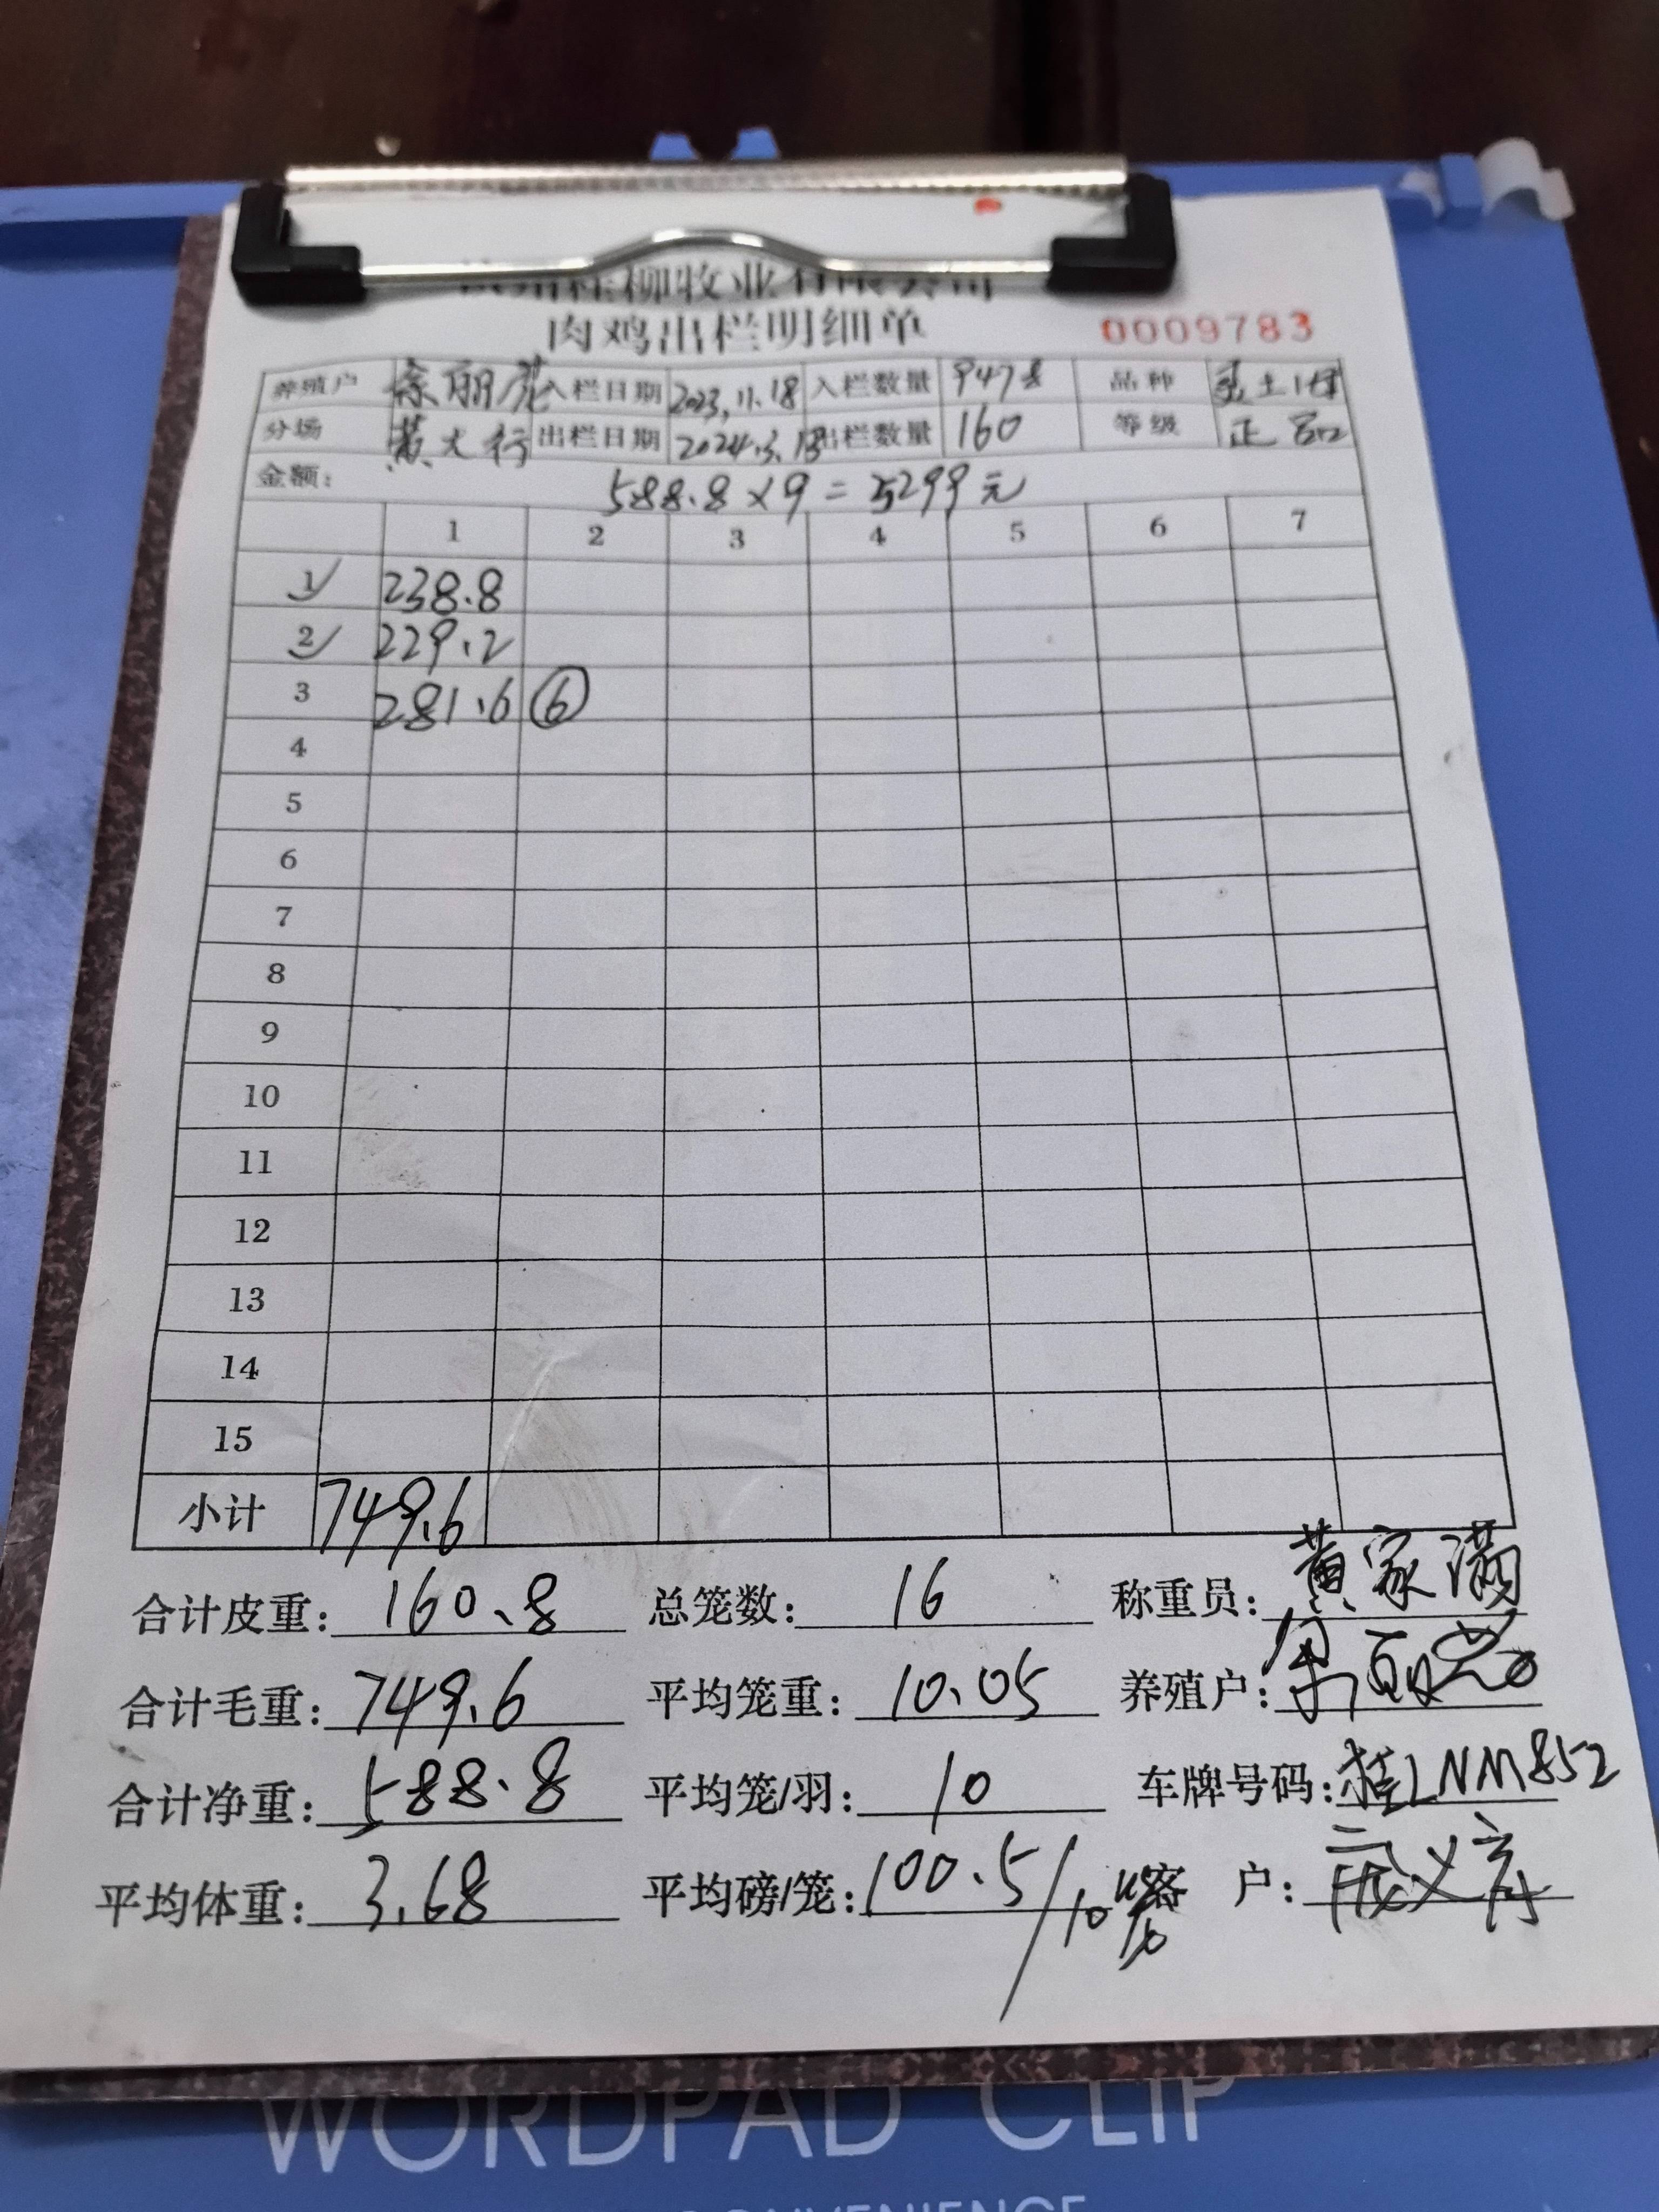 桂柳牧业有限公司
肉鸡出栏明细单 0009783
养殖户 入栏日期 2023.11.18 入栏数量 品种 土1母
分场 黄大行 出栏日期 2024.3.18 出栏数量 160 等级 正品
金额: 588.8×9=5299元
1 2 3 4 5 6 7
1 238.8
2 229.2
3 281.6 ⑥
4
5
6
7
8
9
10
11
12
13
14
15
小计 749.6
合计皮重: 160.8 总笼数: 16 称重员: 黄家满
合计毛重: 749.6 平均笼重: 10.05 养殖户:
合计净重: 588.8 平均笼/羽: 10 车牌号码: 桂LNM852
平均体重: 3.68 平均磅/笼: 100.5/10 客 户:
WORDPAD CLIP
CONVENIENCE